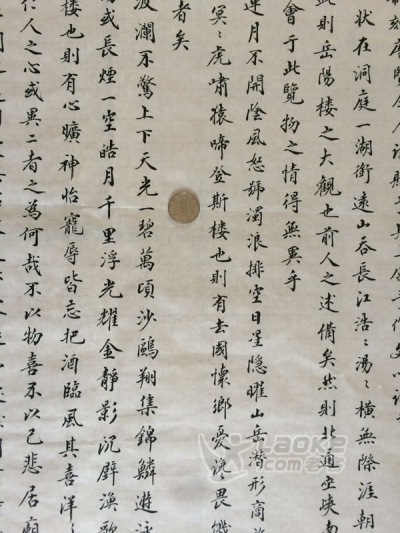 刻唐賢今人詩賦于其上屬予作文以
状在洞庭一湖銜遠山吞長江浩〻湯〻橫無際涯朝
此則岳陽楼之大觀也前人之述備矣然則北通巫峡南
會于此覽物之情得無異乎
連月不開陰風怒號濁浪排空日星隱曜山岳潛形商
冥〻虎嘯猿啼登斯楼也則有去國懷鄉憂讒畏譏
者矣
波瀾不驚上下天光一碧萬頃沙鷗翔集錦鱗遊泳
或長煙一空皓月千里浮光耀金靜影沉璧漁歌
楼也則有心曠神怡寵辱皆忘把酒臨風其喜洋〻
仁人之心或異二者之為何哉不以物喜不以己悲居廟